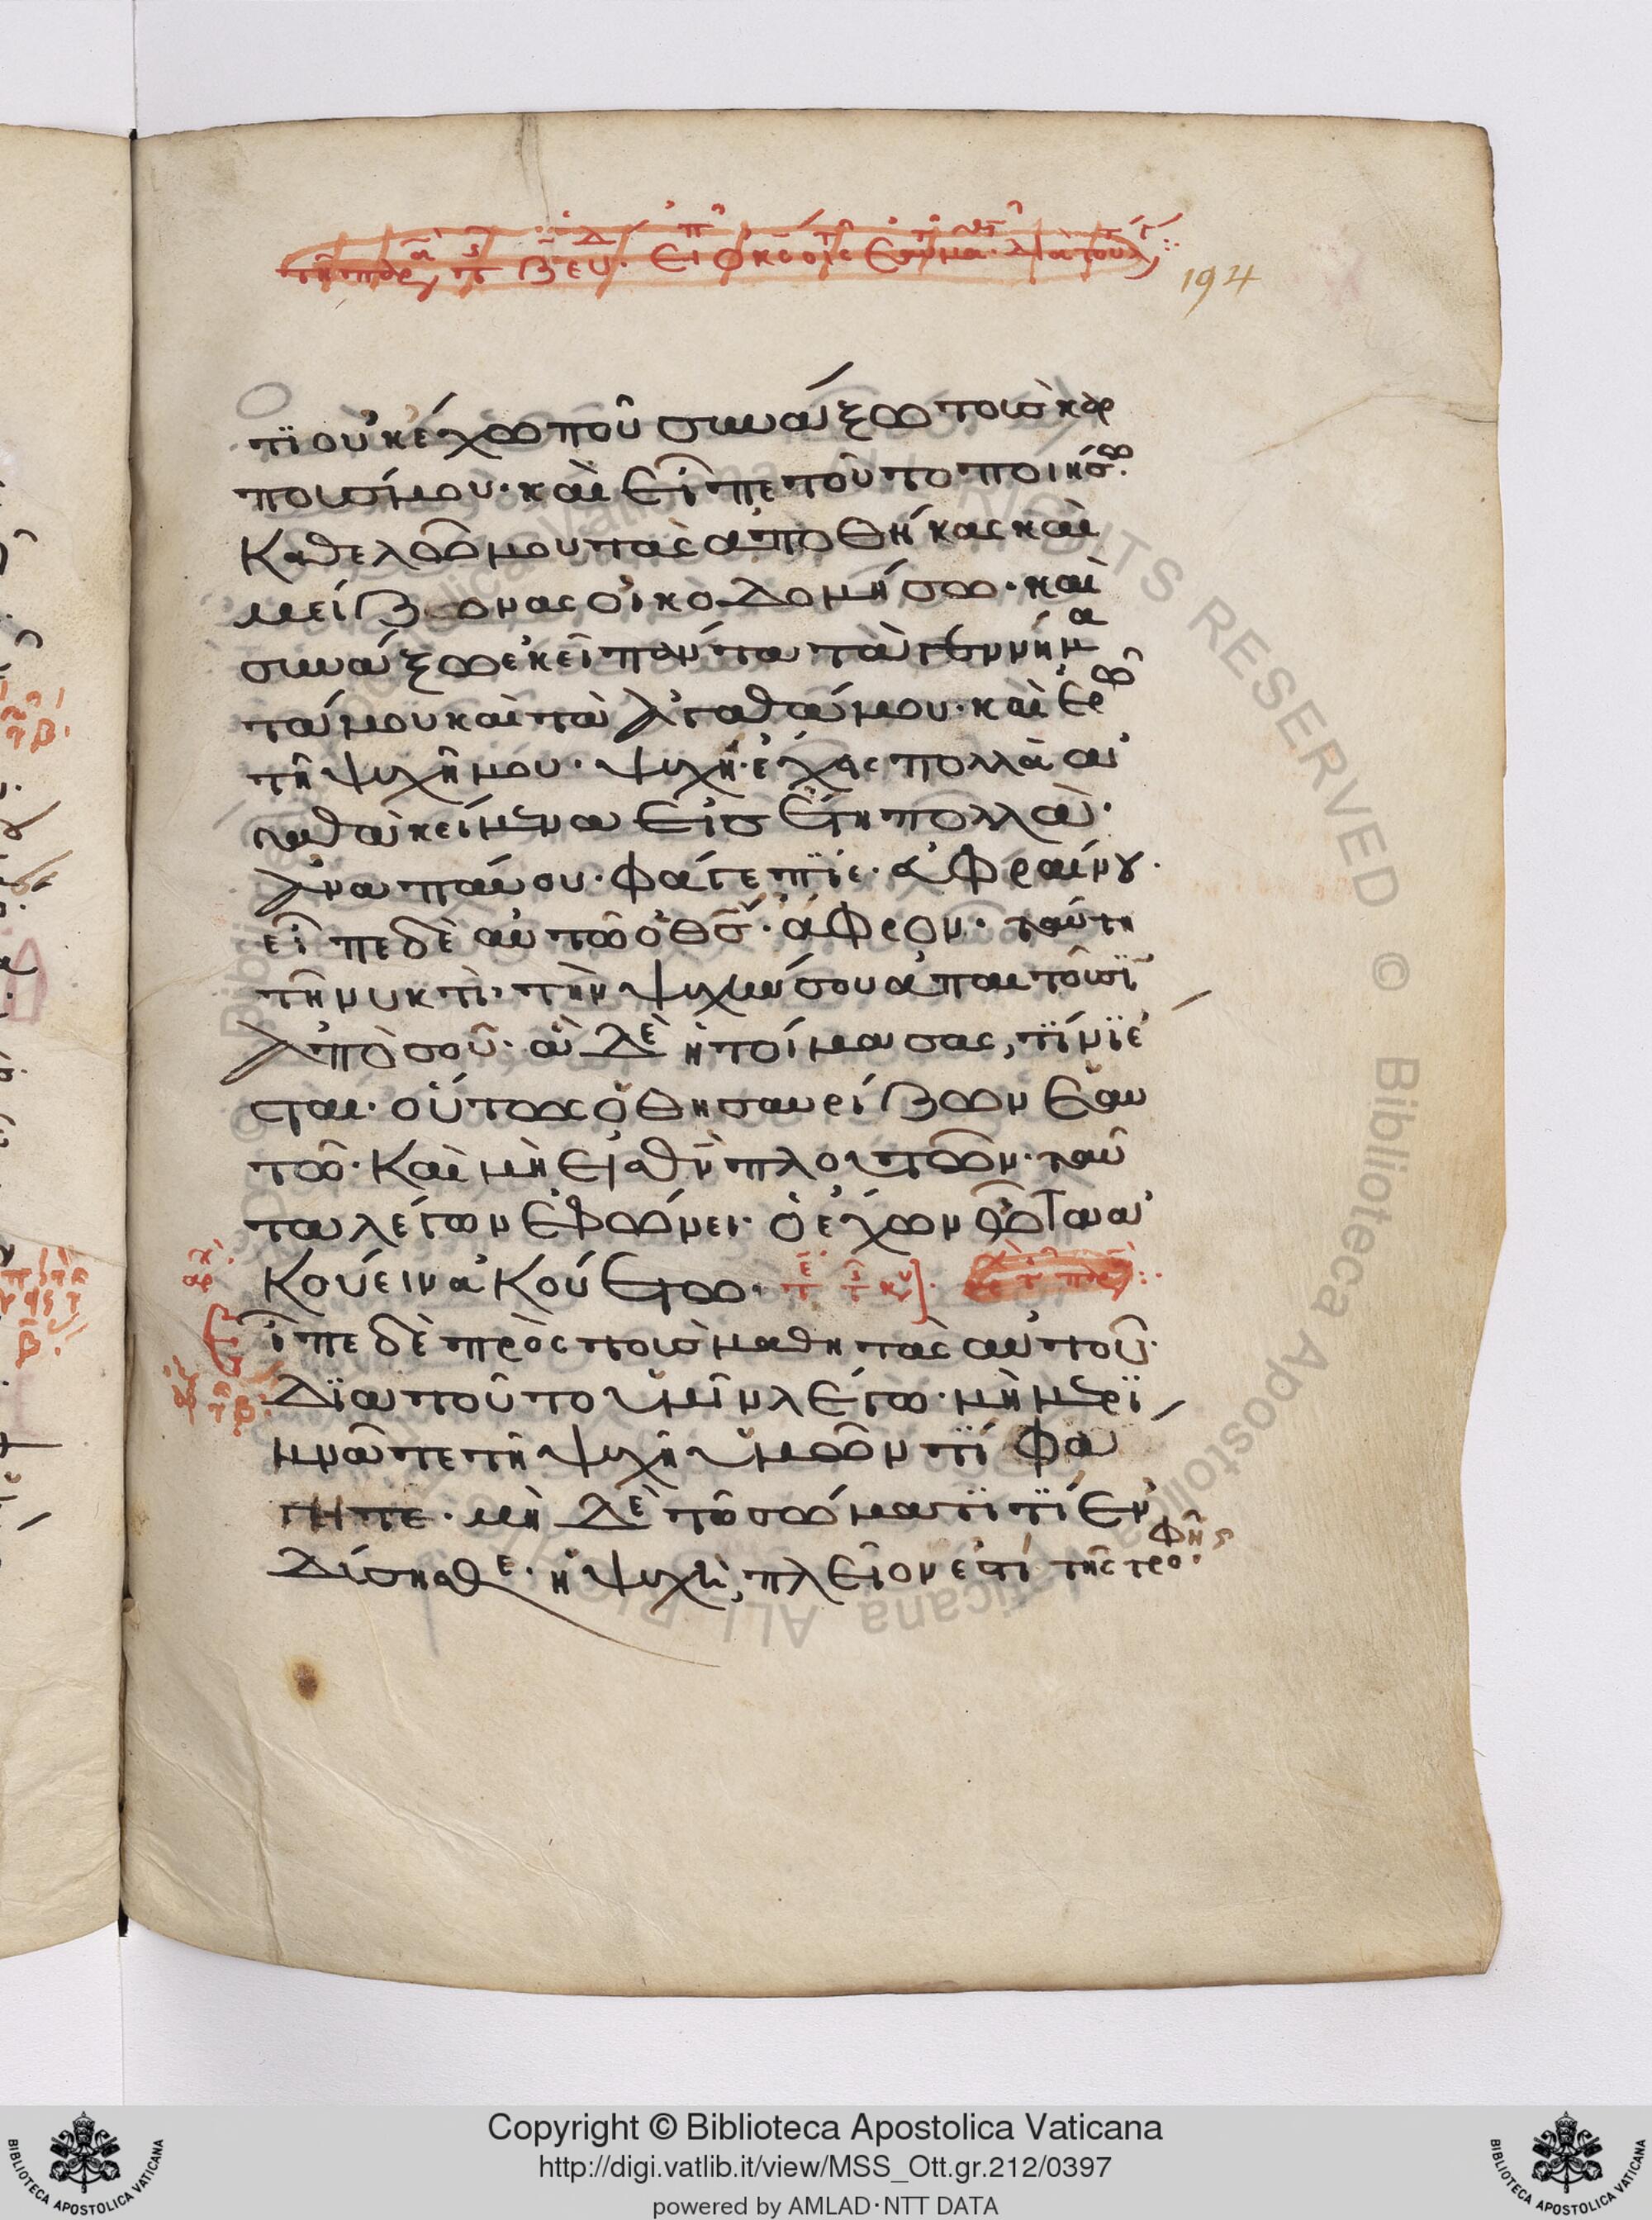 194
τϊ οὐκ ἔχω ποῦ συνάξω τοὺς καρ
ποὺς μου· καὶ εἶπε τοῦτο ποιήσω·
καθελῶ μου τὰς ἀποθήκας καὶ
μείζωνας οἰκοδομήσω· καὶ
συνάξω ἐκεῖ πάντα τὰ γεννήμα
τά μου καὶ τὰ ἀγαθά μου· καὶ ἐρῶ
τῆ ψυχῆ μου· ψυχή· ἔχεις πολλὰ ἀ
γαθὰ κείμενα εἰς ἔτη πολλά·
ἀναπαύου· φάγε πϊε· εὐφραίνου·
εἶπε δὲ αὐτῶ ὁ θς· ἄφρον· ταύτη
τῆ νυκτὶ· τὴν ψυχήν σου ἀπαιτοῦσϊ
ἀπὸ σοῦ· ἃ δὲ ἡτοίμασας, τίνϊ ἔ
σται· οὕτως ὁ θησαυρίζων ἑαυ
τῶ· καὶ μὴ εἰς θν πλουτῶν· ταῦ
τα λέγων ἐφώνει· ὁ ἔχων ὦτα ἀ
κούειν ἀκουέτω·
εἶπε δὲ πρὸς τοὺς μαθητὰς αὐτοῦ·
Δϊὰ τοῦτο ὑμῖν λέγω· μὴ μερϊ
μνᾶτε τῆ ψυχῆ ὑμῶν τί φά
γητε· μὴ δὲ τῶ σώματϊ τϊ ἐν
δύσησθε· ἡ ψυχὴ, πλεῖον ἐστί τῆς τροφῆς
Copyright © Biblioteca Apostolica Vaticana
http://digi.vatlib.it/view/MSS_Ott.gr.212/0397
powered by AMLAD·NTT DATA